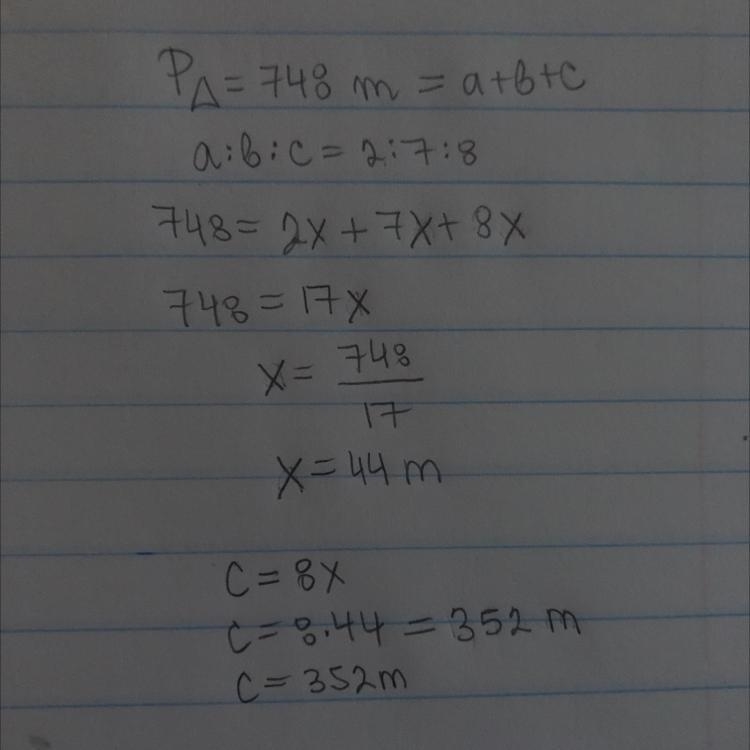 P△ = 748 m = a+b+c
a:b:c = 2:7:8
748 = 2x + 7x + 8x
748 = 17x
x = 748/17
x = 44 m
c = 8x
c = 8·44 = 352 m
c = 352m